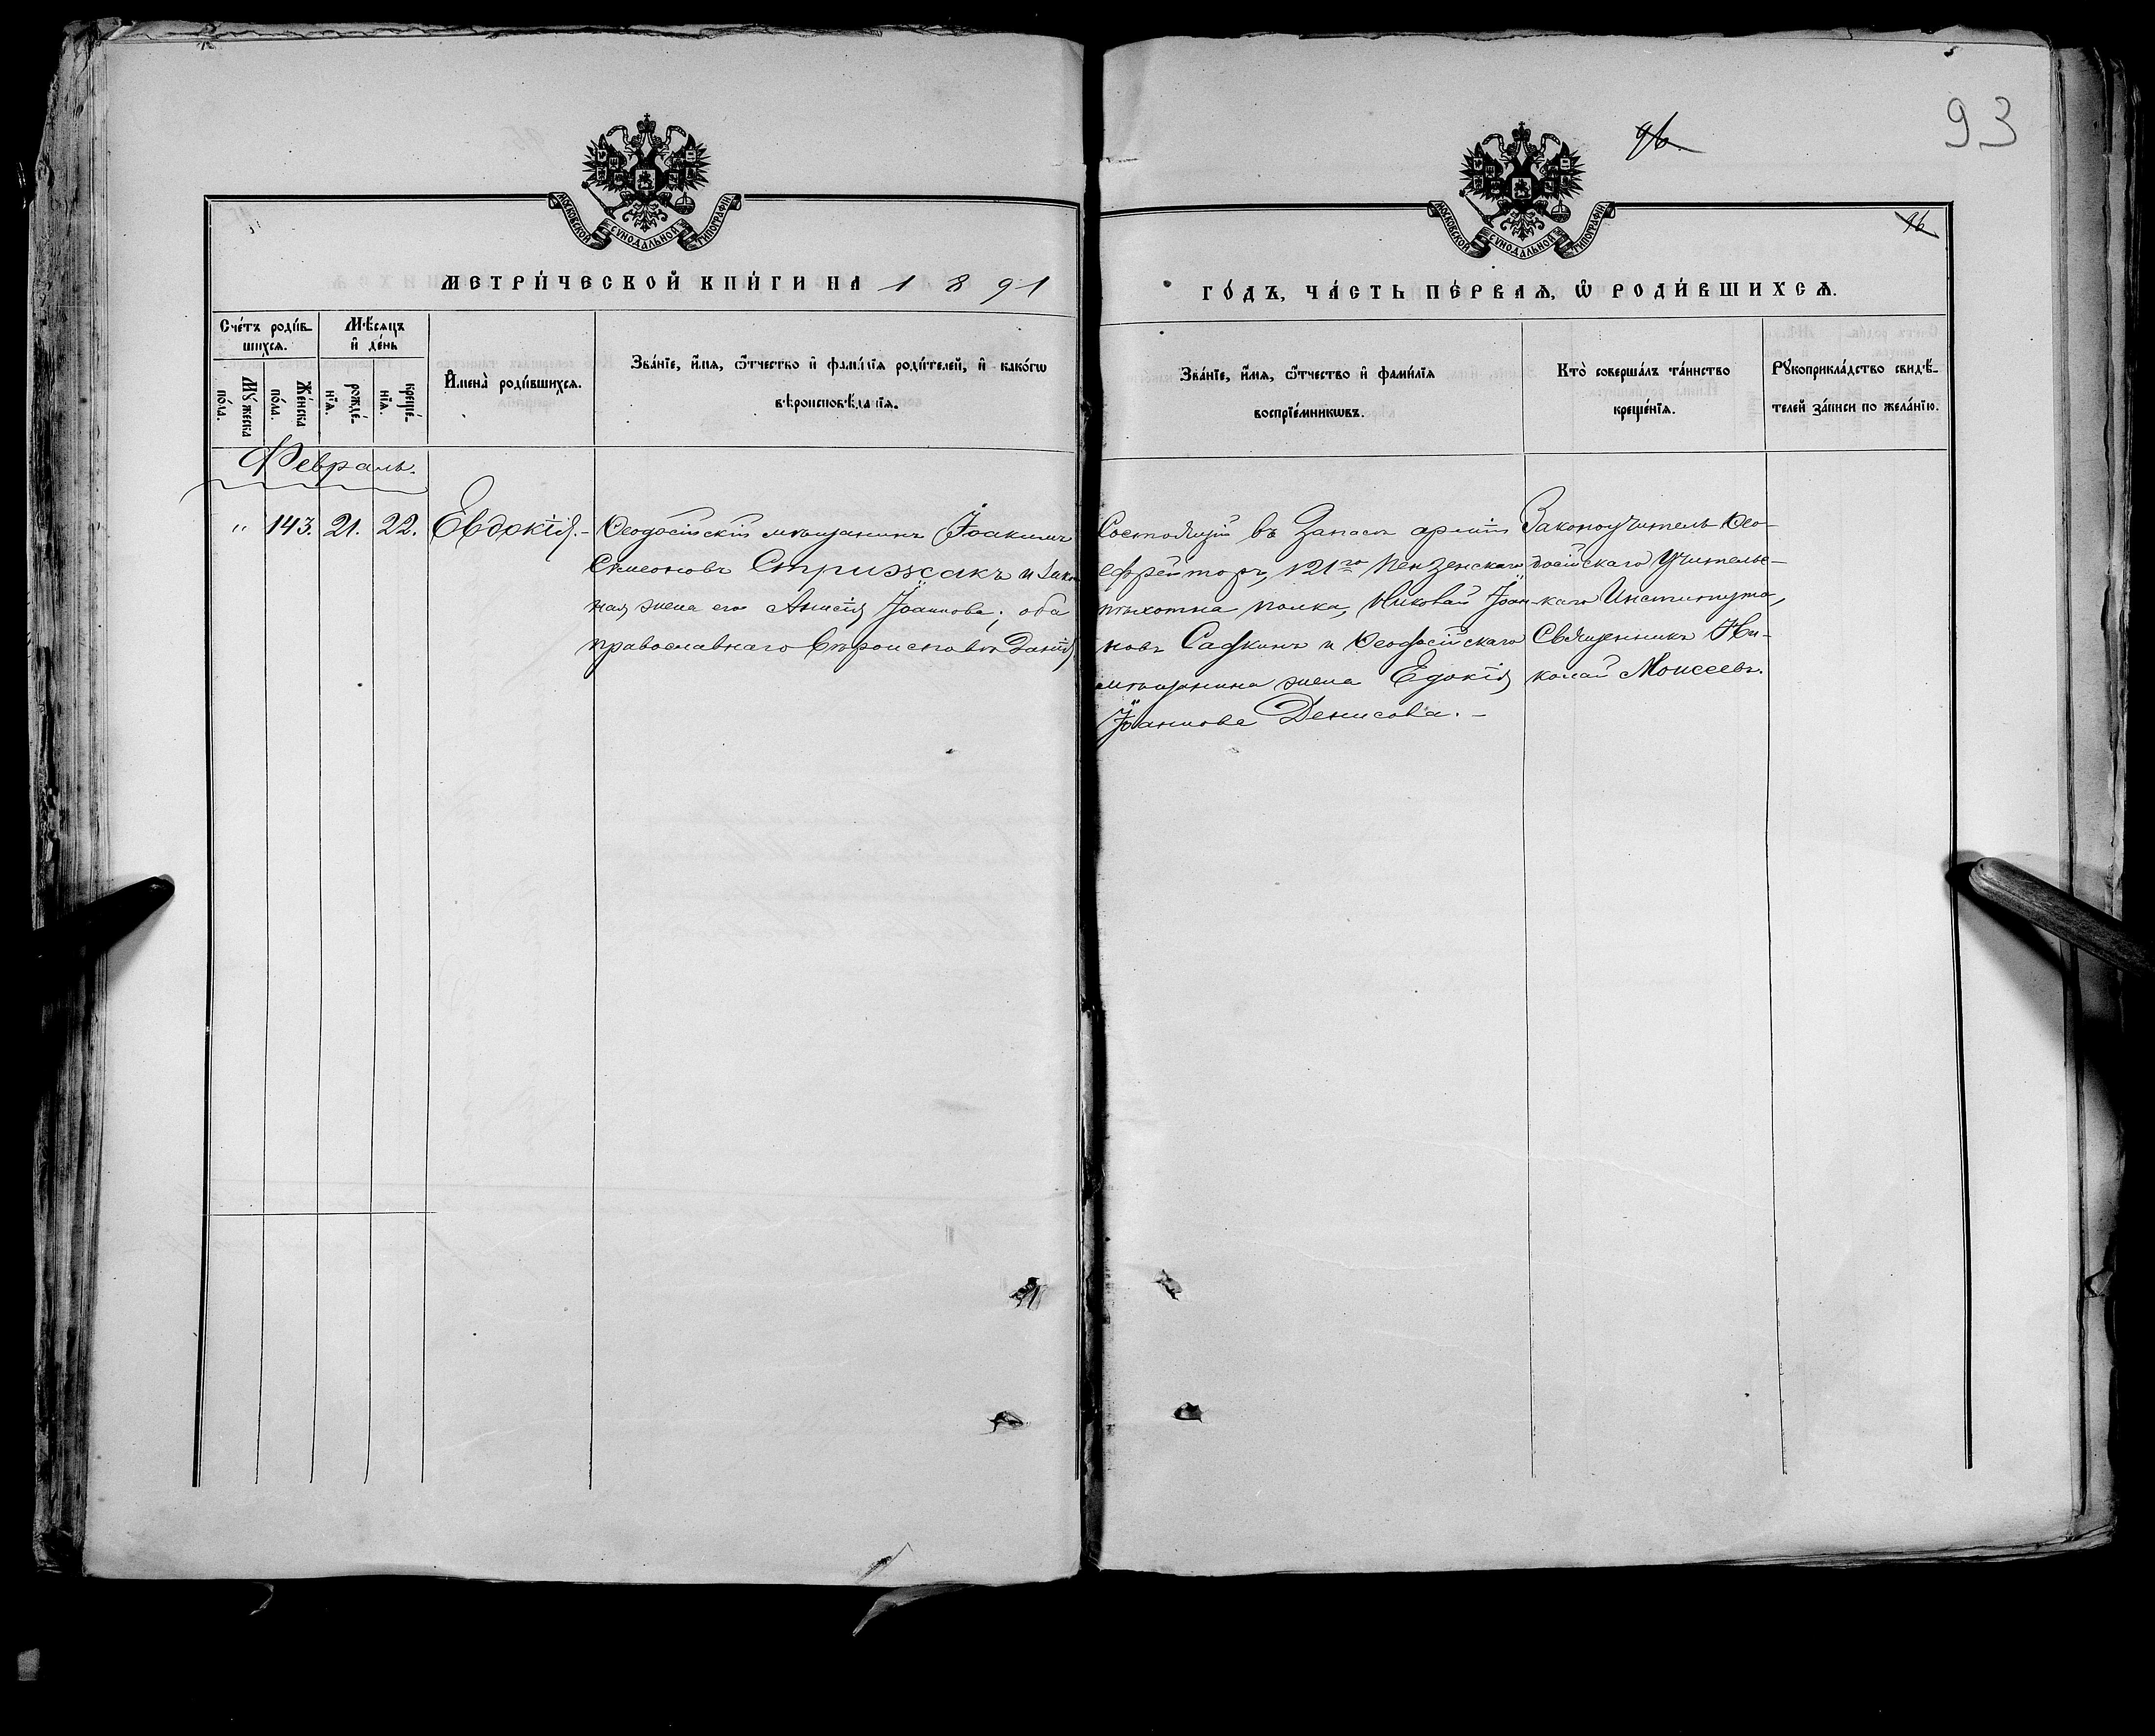 93
96
96
МОСКОВСКОЙ СУНОДАЛЬНОЙ ТИПОГРАФІИ
МОСКОВСКОЙ СУНОДАЛЬНОЙ ТИПОГРАФІИ
МЕТРИ́ЧЕСКОЙ КНИ́ГИ НА 1891
ГО́ДЪ, ЧА́СТЬ ПЕ́РВАѦ, Ѽ РОДИ́ВШИХСѦ.
Сче́тъ роди́в-
шихсѧ.
Мѣ́сѧцъ
и҆ де́нь
Мꙋ́жеска
по́ла.
Же́нска
по́ла.
рожде́-
нїѧ.
креще́-
нїѧ.
И҆мена̀ роди́вшихсѧ.
Зва́нїе, и҆́мѧ, ѻ҆́тчество и҆ фамї́лїѧ роди́телей, и҆ како́гѡ
вѣроисповѣ́данїѧ.
Зва́нїе, и҆́мѧ, ѻ҆́тчество и҆ фами́лїѧ
воспрїе́мникѡвъ.
Кто̀ соверша́лъ та́инство
креще́нїѧ.
Рꙋкоприкла́дство свидѣ́-
телей за́писи по жела́нїю.
Февраль.
" 143. 21. 22. Евдокія.-
Ѳеодосійскій мѣщанинъ Іоакимъ
Симеоновъ Стрижакъ и закон
ная жена его Анисія Іоаннова; оба
православнаго вѣроисповѣданія
Состоящій въ Запасѣ арміи
ефрейторъ, 121го Пензенскаго
пѣхотна полка, Николай Іоан-
новъ Сафкинъ и Ѳеодосійскаго
мѣщанина жена Едокія
Іоаннова Денисова. -
Законоучитель Ѳео-
досійскаго Учительс-
каго Института,
Священникъ Ни-
колай Моисеевъ.